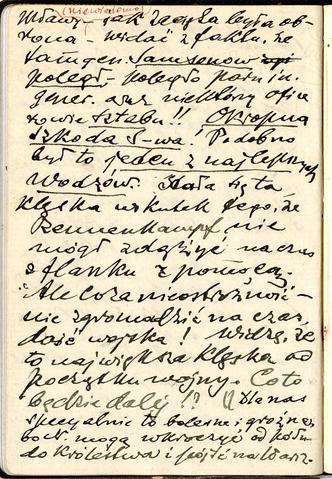 (niewiadomo)
Mławy - jak zacięta była ob-
rona - widać z faktu, że
tam gen. Samsonow
poległ, poległo paru in.
gener. oraz niektórzy ofice-
rowie sztabu!! Okropna
szkoda S-wa! Podobno
był to jeden z najlepszych
wodzów. Stała się ta
klęska wskutek tego, że
Rennenkampf nie
mógł zdążyć na czas
z flanku z pomocą.
Ale co za nieostrożność -
nie zgromadzić na czas
dość wojska! Widzę, że
to największa klęska od
początku wojny. Co to
będzie dalej!? Dla nas
specjalnie to bolesne i groźne,
bo N. mogą wkroczyć od półn.
do Królestwa i pójść na Warsz.